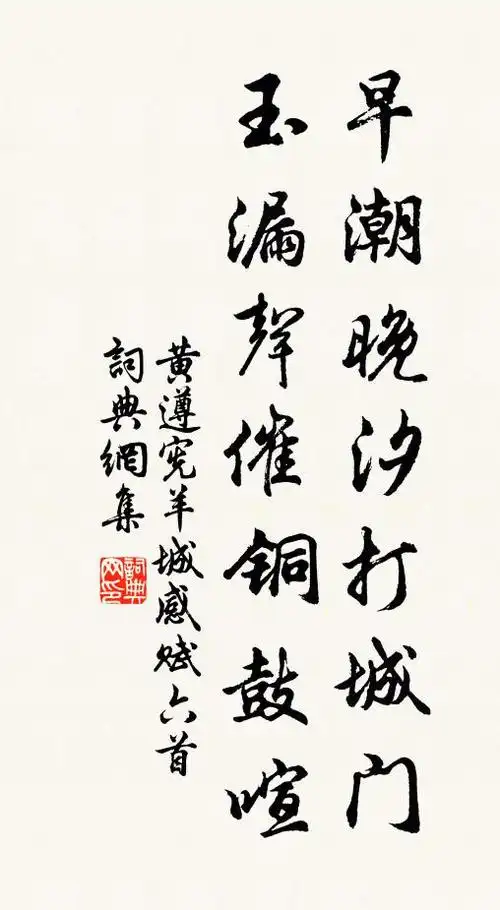 早潮晚汐打城门
玉漏聲催銅鼓喧
黄遵宪羊城感赋六首
詞典網集
詞典网印